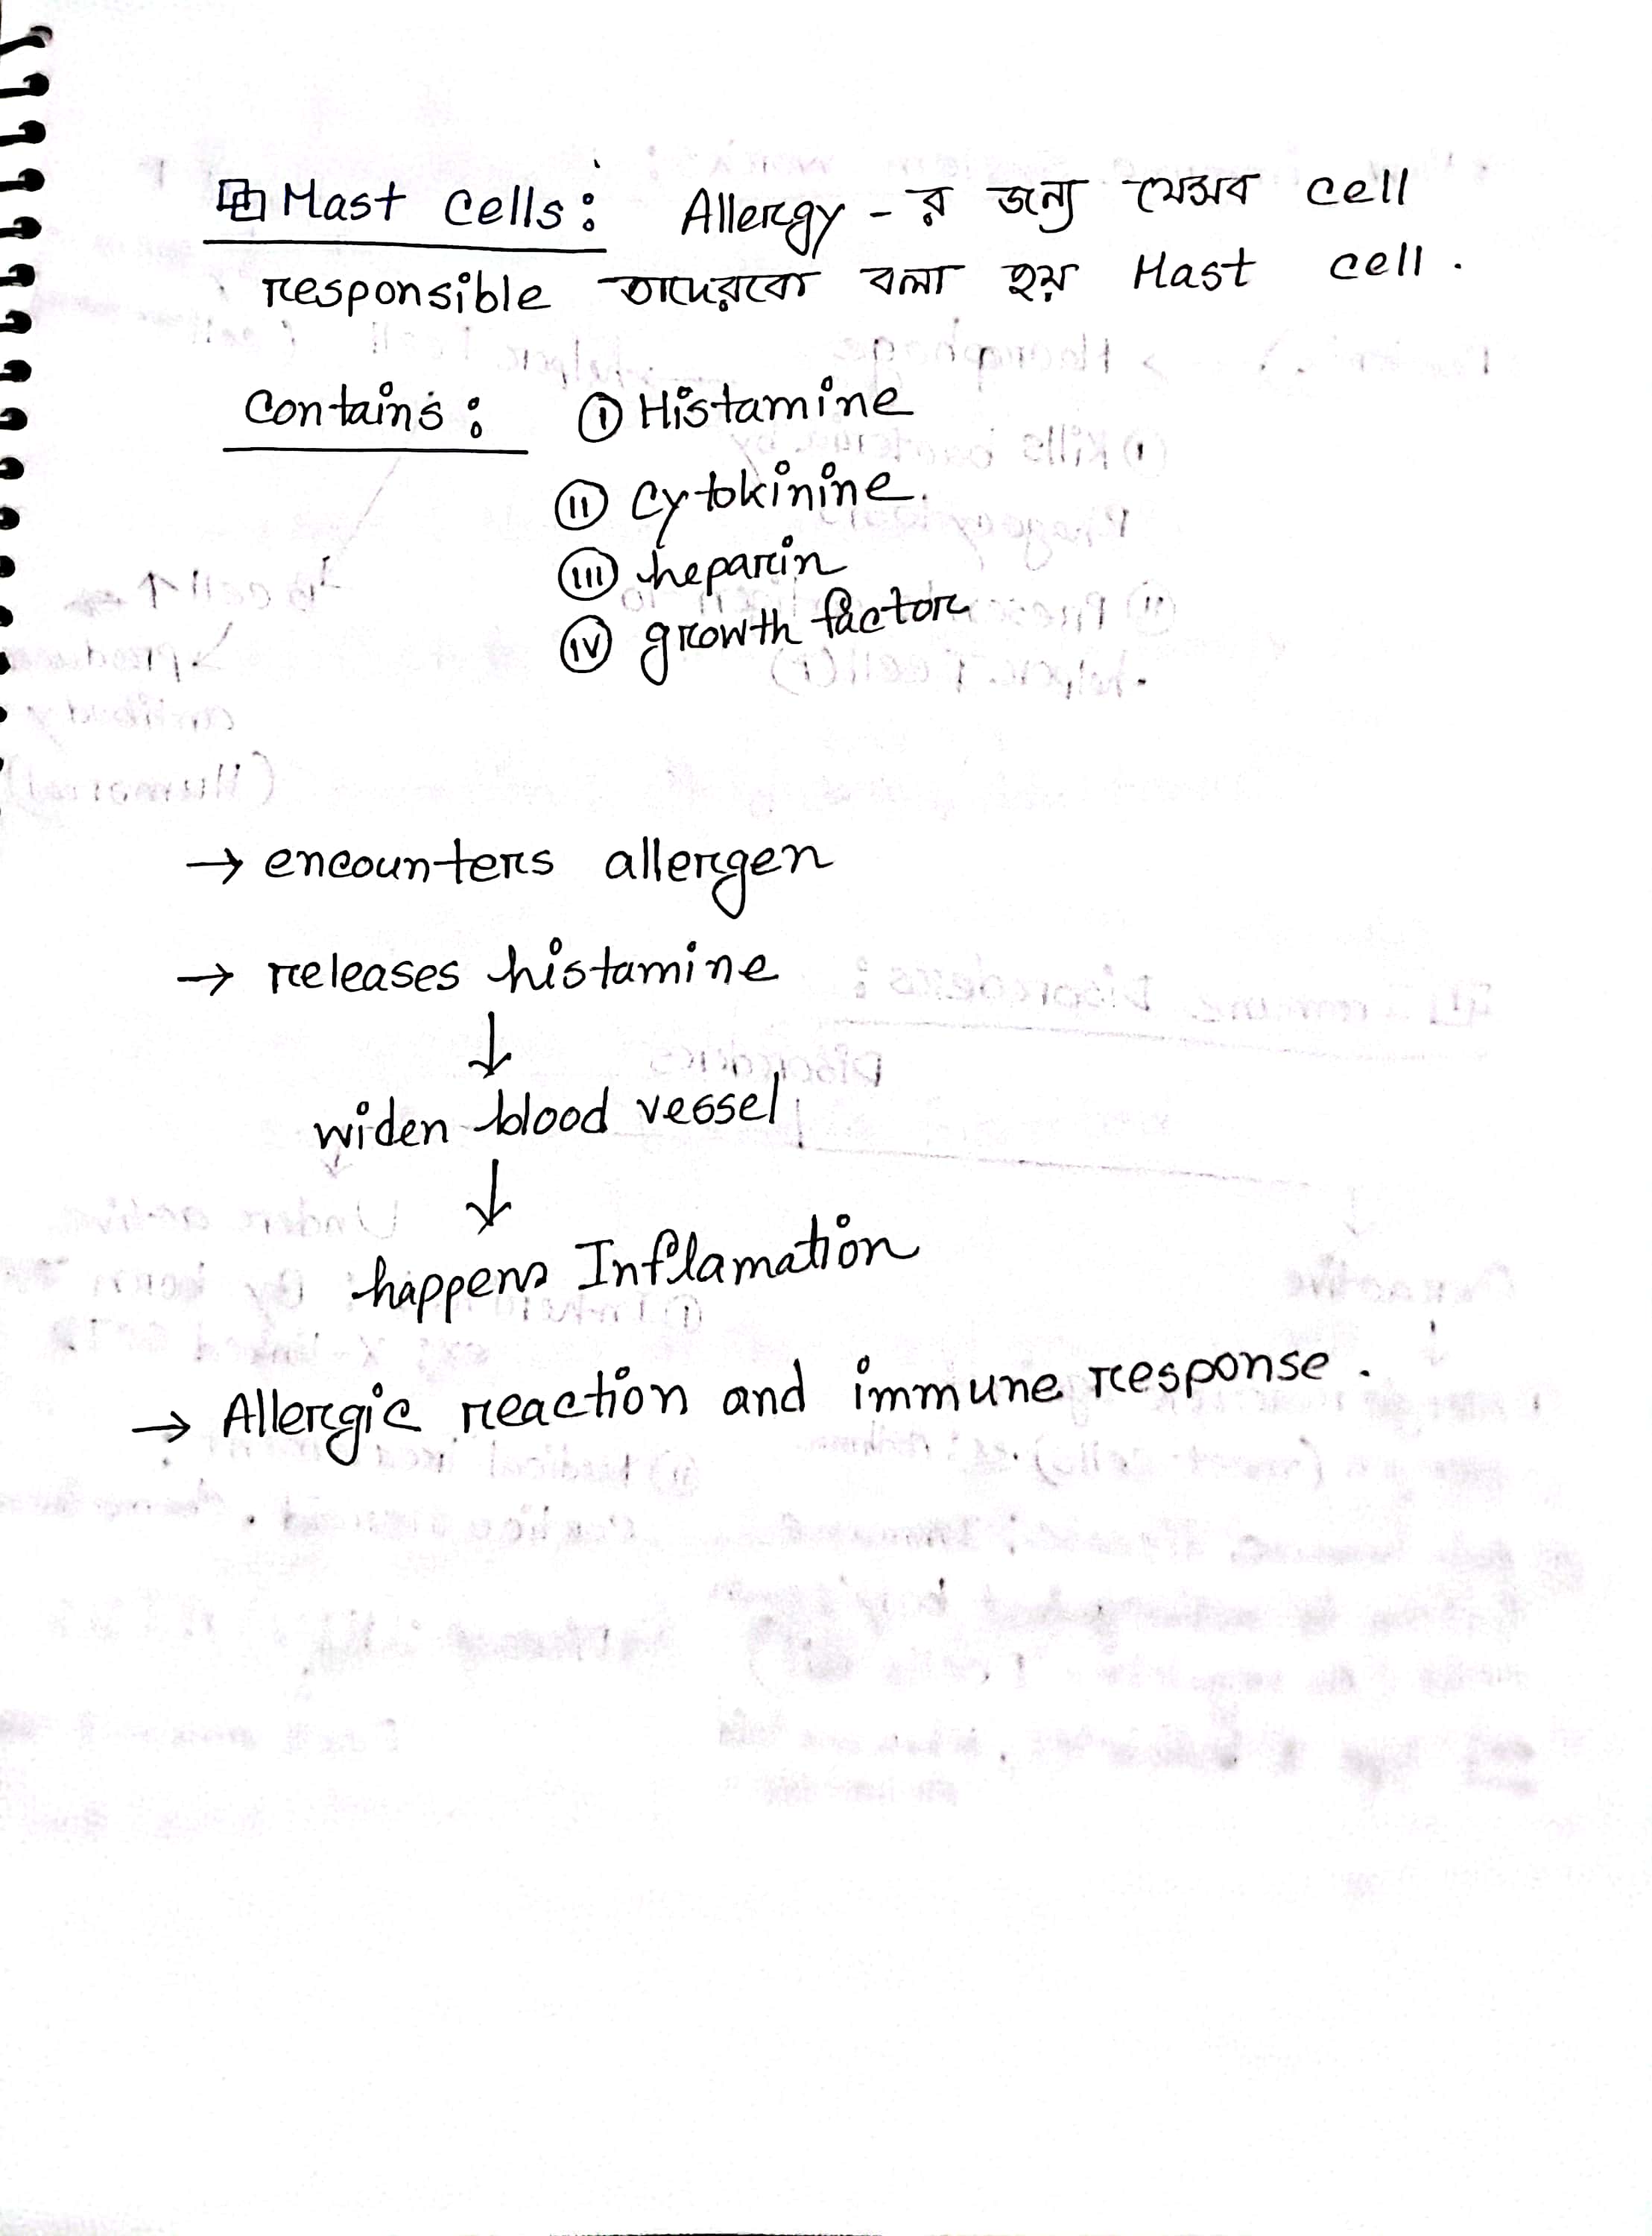 Mast Cells: Allergy - র জন্য যেসব cell
responsible তাদেরকে বলা হয় Mast cell.
Contains: (i) Histamine
(ii) Cytokinine.
(iii) heparin
(iv) growth factor
→ encounters allergen
→ releases histamine
↓
widen blood vessel
↓
happens Inflamation
→ Allergic reaction and immune response.